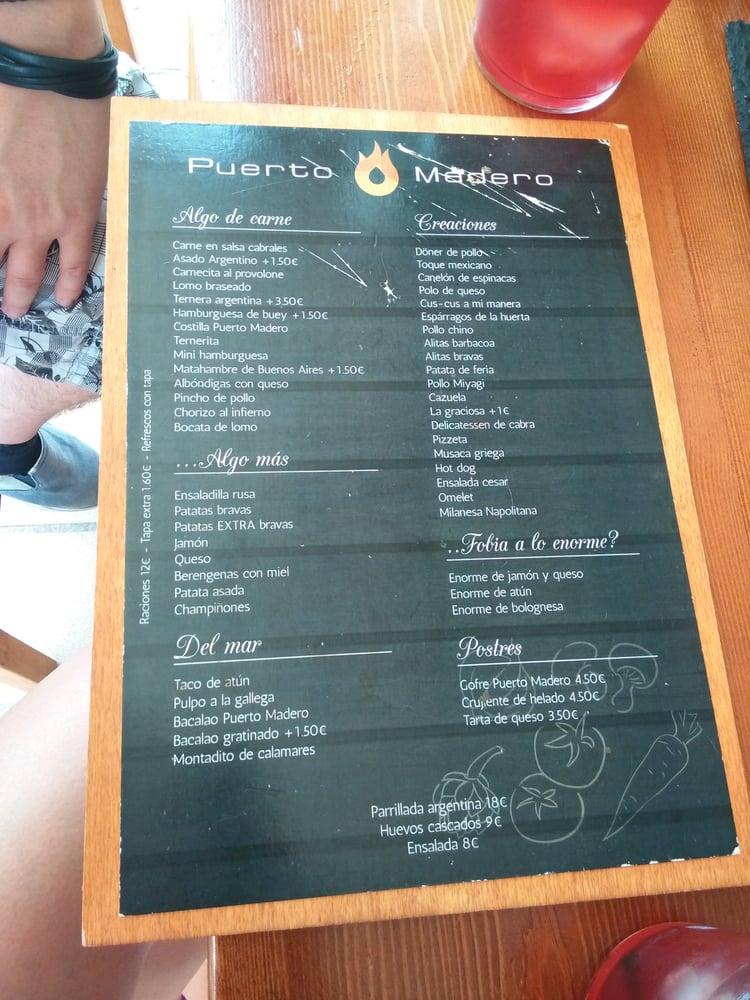 Puerto Madero
Algo de carne
Carne en salsa cabrales
Asado Argentino +1.50€
Carnecita al provolone
Lomo braseado
Ternera argentina +3.50€
Hamburguesa de buey +1.50€
Costilla Puerto Madero
Ternerita
Mini hamburguesa
Matahambre de Buenos Aires +1.50€
Albóndigas con queso
Pincho de pollo
Chorizo al infierno
Bocata de lomo
...Algo más
Ensaladilla rusa
Patatas bravas
Patatas EXTRA bravas
Jamón
Queso
Berengenas con miel
Patata asada
Champiñones
Del mar
Taco de atún
Pulpo a la gallega
Bacalao Puerto Madero
Bacalao gratinado +1.50€
Montadito de calamares
Creaciones
Döner de pollo
Toque mexicano
Canelón de espinacas
Polo de queso
Cus-cus a mi manera
Espárragos de la huerta
Pollo chino
Alitas barbacoa
Alitas bravas
Patata de feria
Pollo Miyagi
Cazuela
La graciosa +1€
Delicatessen de cabra
Pizzeta
Musaca griega
Hot dog
Ensalada cesar
Omelet
Milanesa Napolitana
..Fobia a lo enorme?
Enorme de jamón y queso
Enorme de atún
Enorme de bolognesa
Postres
Gofre Puerto Madero 4.50€
Crujiente de helado 4.50€
Tarta de queso 3.50€
Parrillada argentina 18€
Huevos cascados 9€
Ensalada 8€
Raciones 12€ - Tapa extra 1.60€ - Refrescos con tapa